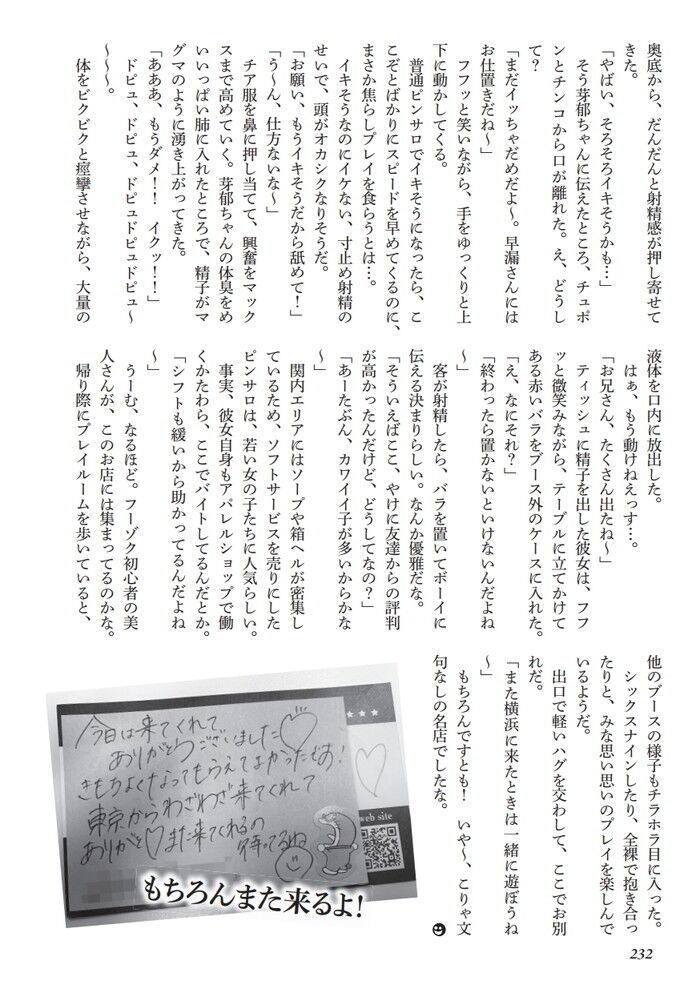 奥底から、だんだんと射精感が押し寄せて
きた。
「やばい、そろそろイキそうかも…」
そう芽郁ちゃんに伝えたところ、チュポ
ンとチンコから口が離れた。え、どうし
て?
「まだイッちゃだめだよ〜。早漏さんには
お仕置きだね〜」
フフッと笑いながら、手をゆっくりと上
下に動かしてくる。
普通ピンサロでイキそうになったら、こ
こぞとばかりにスピードを早めてくるのに、
まさか焦らしプレイを食らうとは…。
イキそうなのにイケない、寸止め射精の
せいで、頭がオカシクなりそうだ。
「お願い、もうイキそうだから舐めて!」
「う〜ん、仕方ないな〜」
チア服を鼻に押し当てて、興奮をマック
スまで高めていく。芽郁ちゃんの体臭をめ
いいっぱい肺に入れたところで、精子がマ
グマのように湧き上がってきた。
「あああ、もうダメ!! イクッ!!」
ドピュ、ドピュ、ドピュドピュドピュ〜
〜〜〜。
体をビクビクと痙攣させながら、大量の
液体を口内に放出した。
はぁ、もう動けねえっす…。
「お兄さん、たくさん出たね〜」
ティッシュに精子を出した彼女は、フフ
ッと微笑みながら、テーブルに立てかけて
ある赤いバラをブース外のケースに入れた。
「え、なにそれ?」
「終わったら置かないといけないんだよね
〜」
客が射精したら、バラを置いてボーイに
伝える決まりらしい。なんか優雅だな。
「そういえばここ、やけに友達からの評判
が高かったんだけど、どうしてなの?」
「あーたぶん、カワイイ子が多いからかな
〜」
関内エリアにはソープや箱ヘルが密集し
ているため、ソフトサービスを売りにした
ピンサロは、若い女の子たちに人気らしい。
事実、彼女自身もアパレルショップで働
くかたわら、ここでバイトしてるんだとか。
「シフトも緩いから助かってるんだよね
〜」
うーむ、なるほど。フーゾク初心者の美
人さんが、このお店には集まってるのかな。
帰り際にプレイルームを歩いていると、
他のブースの様子もチラホラ目に入った。
シックスナインしたり、全裸で抱き合っ
たりと、みな思い思いのプレイを楽しんで
いるようだ。
出口で軽いハグを交わして、ここでお別
れだ。
「また横浜に来たときは一緒に遊ぼうね
〜」
もちろんですとも! いや〜、こりゃ文
句なしの名店でしたな。
今日は来てくれて
ありがとうございました♡
きもちよくなってもらえてよかったです!
東京からわざわざ来てくれて
ありがと♡また来てくれるの
待ってるね
web site
もちろんまた来るよ!
232